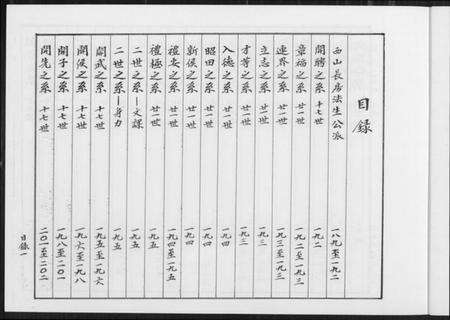 目錄
西山長房法生公派 一八九至一九二
開聘之系 十七世 一九二
章福之系 廿一世 一九二至一九三
連界之系 廿一世 一九三至一九三
立志之系 廿一世 一九三
才等之系 廿一世 一九三
入德之系 廿一世 一九四
昭田之系 廿一世 一九四
新侯之系 廿一世 一九四
禮友之系 廿一世 一九四至一九五
禮極之系 廿一世 一九五
二世之系—文謀 一九五
二世之系—舟力 一九五
開武之系 十七世 一九五至一九六
開侯之系 十七世 一九六至一九八
開子之系 十七世 一九八至二〇一
開先之系 十七世 二〇一至二〇二
目錄一